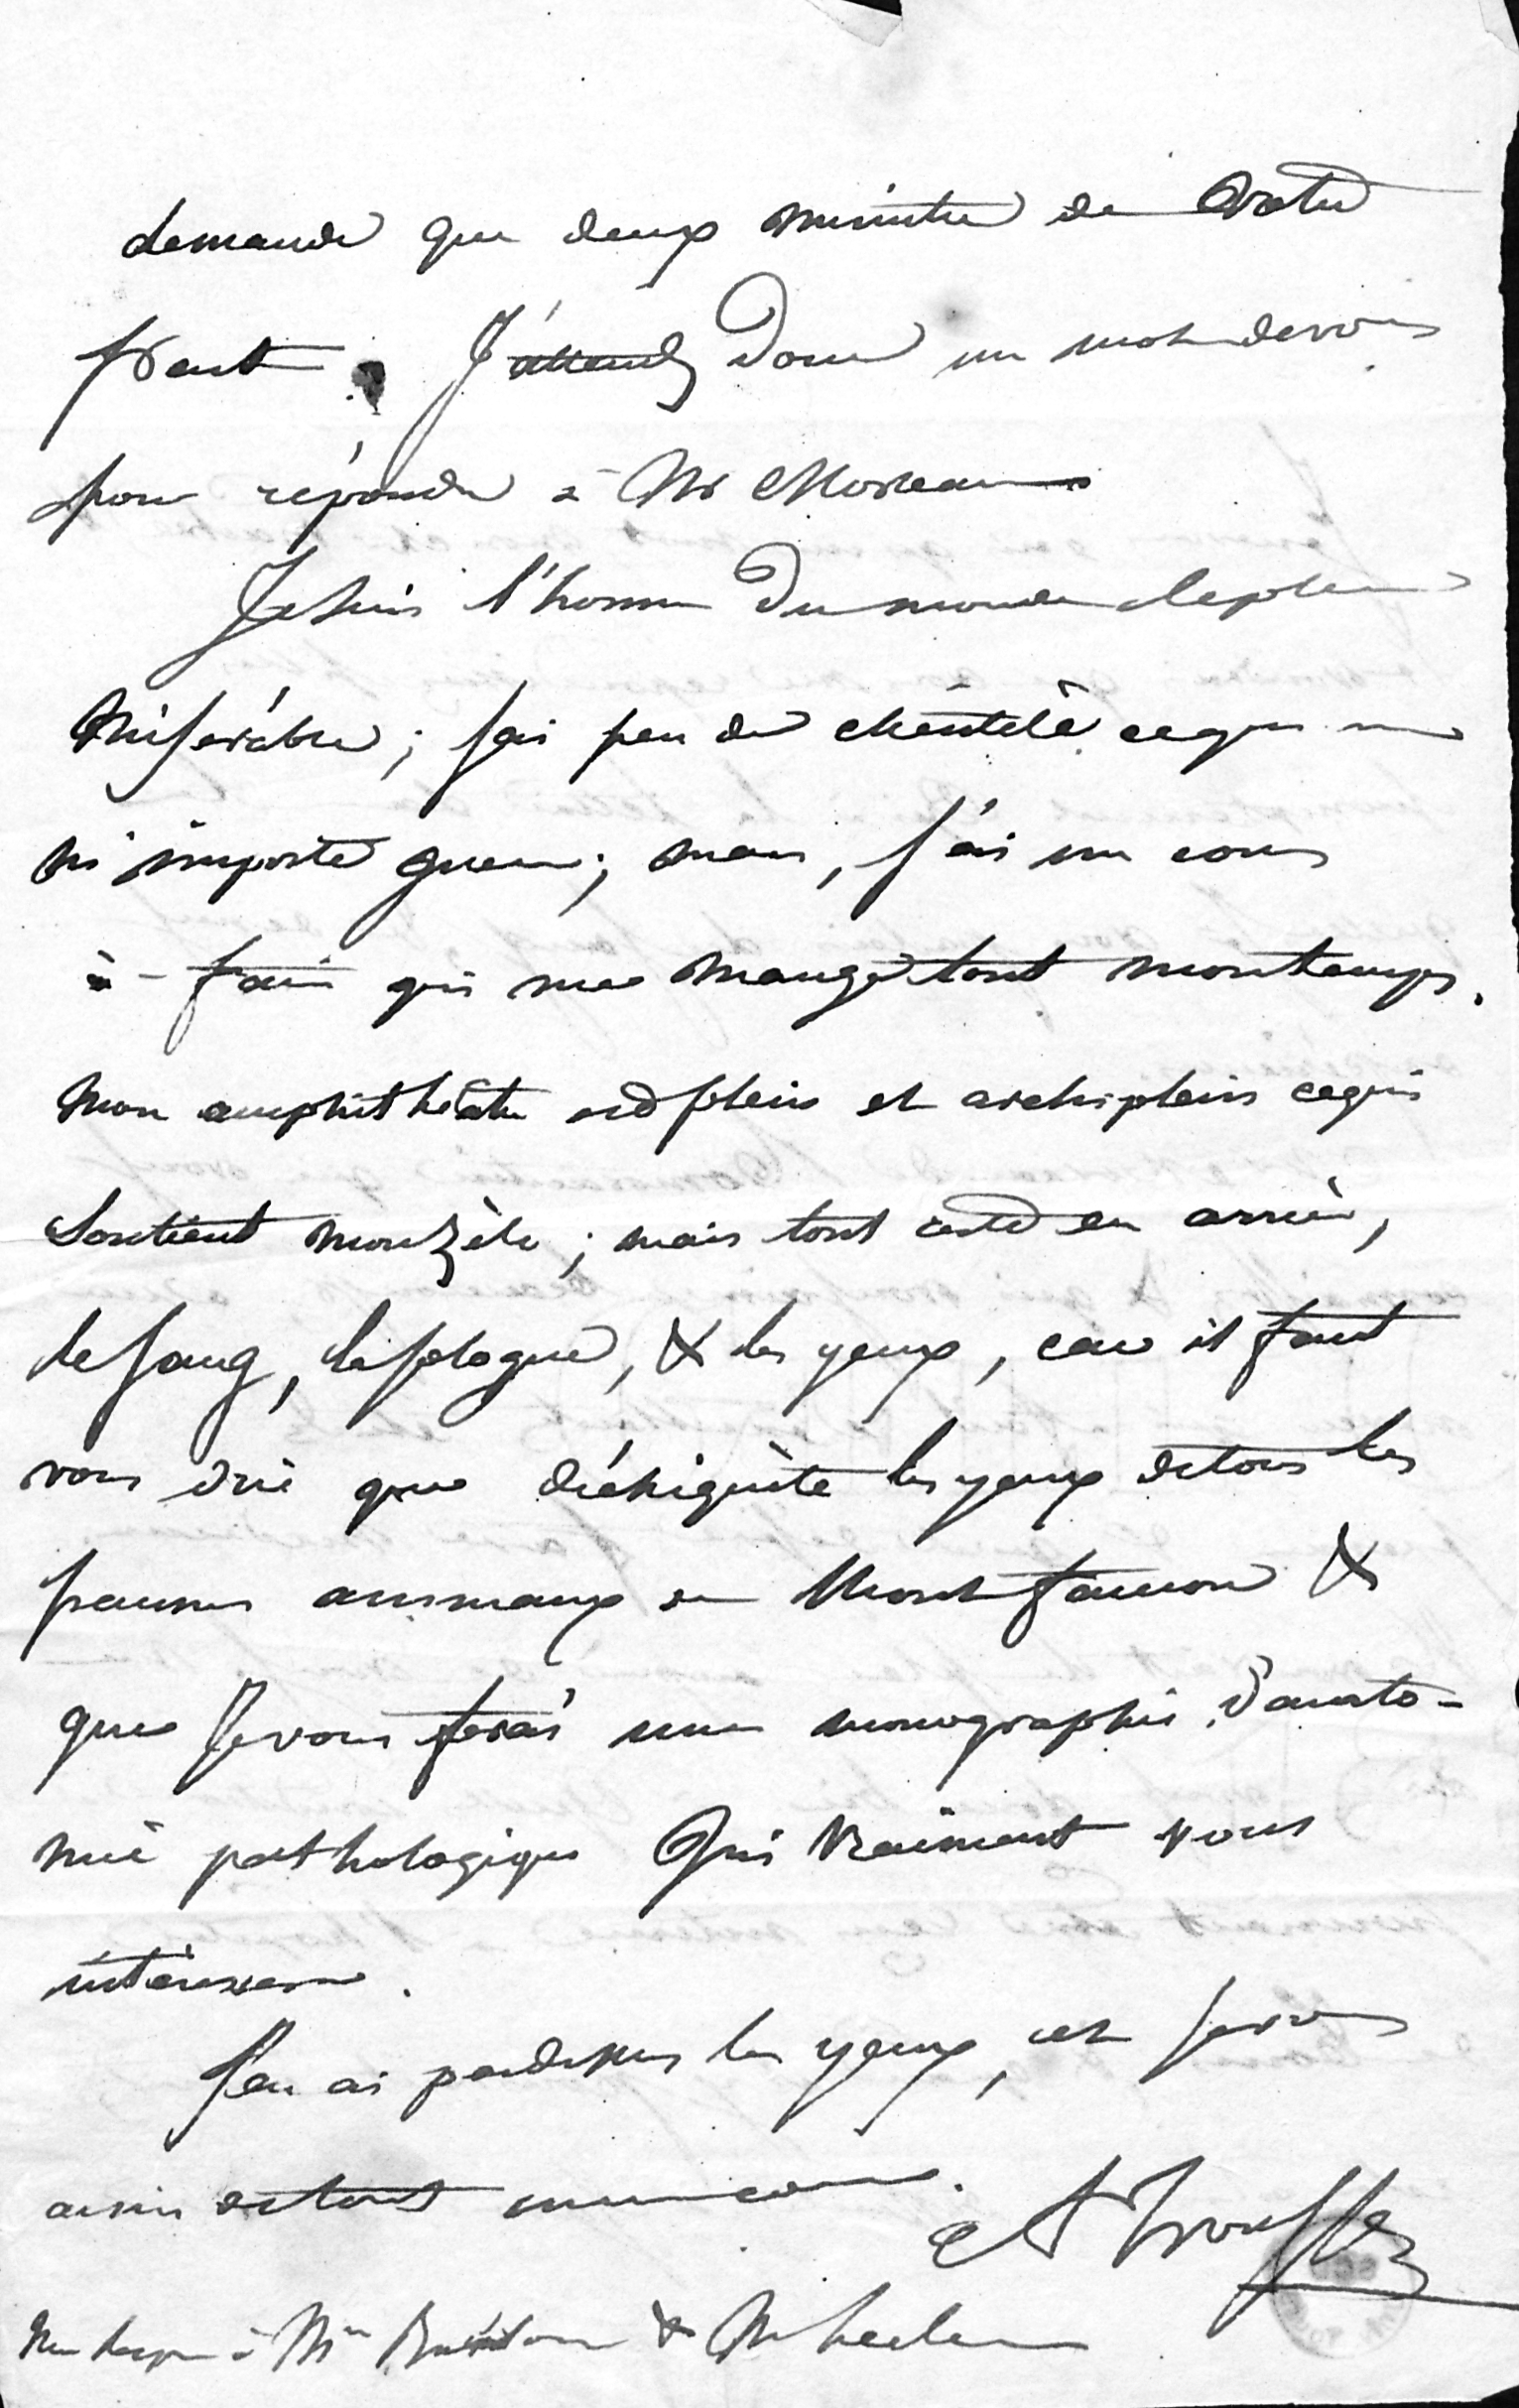 demande que deux ministre de votre
front. J'attends donc un mot de vous
pour répondre à Mr Moreau
Je suis l'homme du monde le plus
misérable ; j'ai peu de clientèle ce qui ne
m'importe guere ; mais, j'ai un cours
à faire qui me mange tout mon temps.
mon amphithéatre est plein et archiplein ce qui
soutient mon zèle ; mais tout reste en arrière,
le sang, la plogue, & les yeux, car il faut
vous dire que déchiquète les yeux de tous les
pauvres animaux de Montfaucon &
que je vous ferai une monographie d'anato-
mie pathologique qui vraiment vous
intéressera.
J'en ai par dessus les yeux, et je vous
aime de tout mon coeur.
A Trousseau
à Mme & Mr